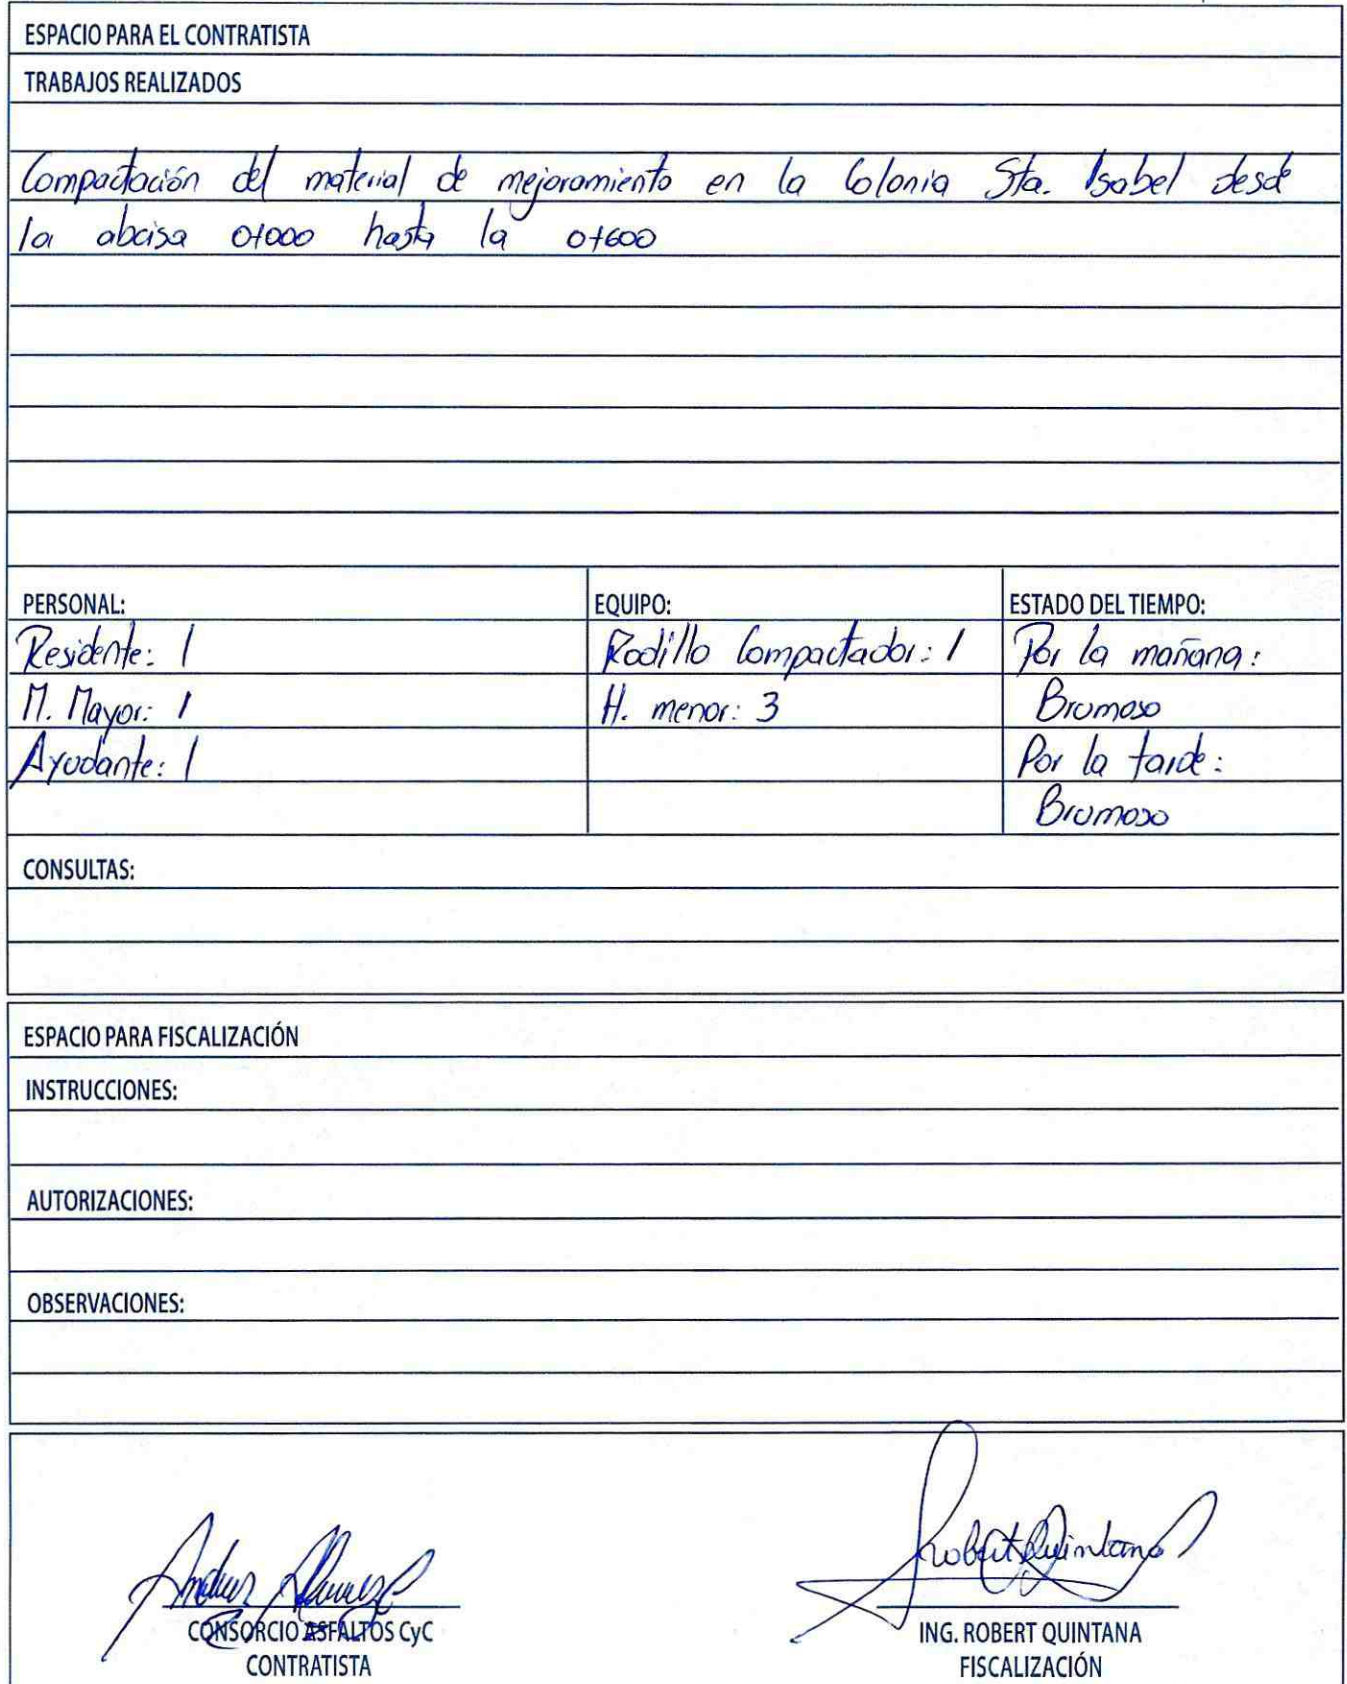 ESPACIO PARA EL CONTRATISTA
TRABAJOS REALIZADOS
Compactación del material de mejoramiento en la Colonia Sta. Isabel desde
la abcisa 0+000 hasta la 0+600
PERSONAL:
Residente: 1
M. Mayor: 1
Ayudante: 1
EQUIPO:
Rodillo Compactador: 1
H. menor: 3
ESTADO DEL TIEMPO:
Por la mañana:
Brumoso
Por la tarde:
Brumoso
CONSULTAS:
ESPACIO PARA FISCALIZACIÓN
INSTRUCCIONES:
AUTORIZACIONES:
OBSERVACIONES:
CONSORCIO ASFALTOS CyC
CONTRATISTA
Robert Quintana
ING. ROBERT QUINTANA
FISCALIZACIÓN